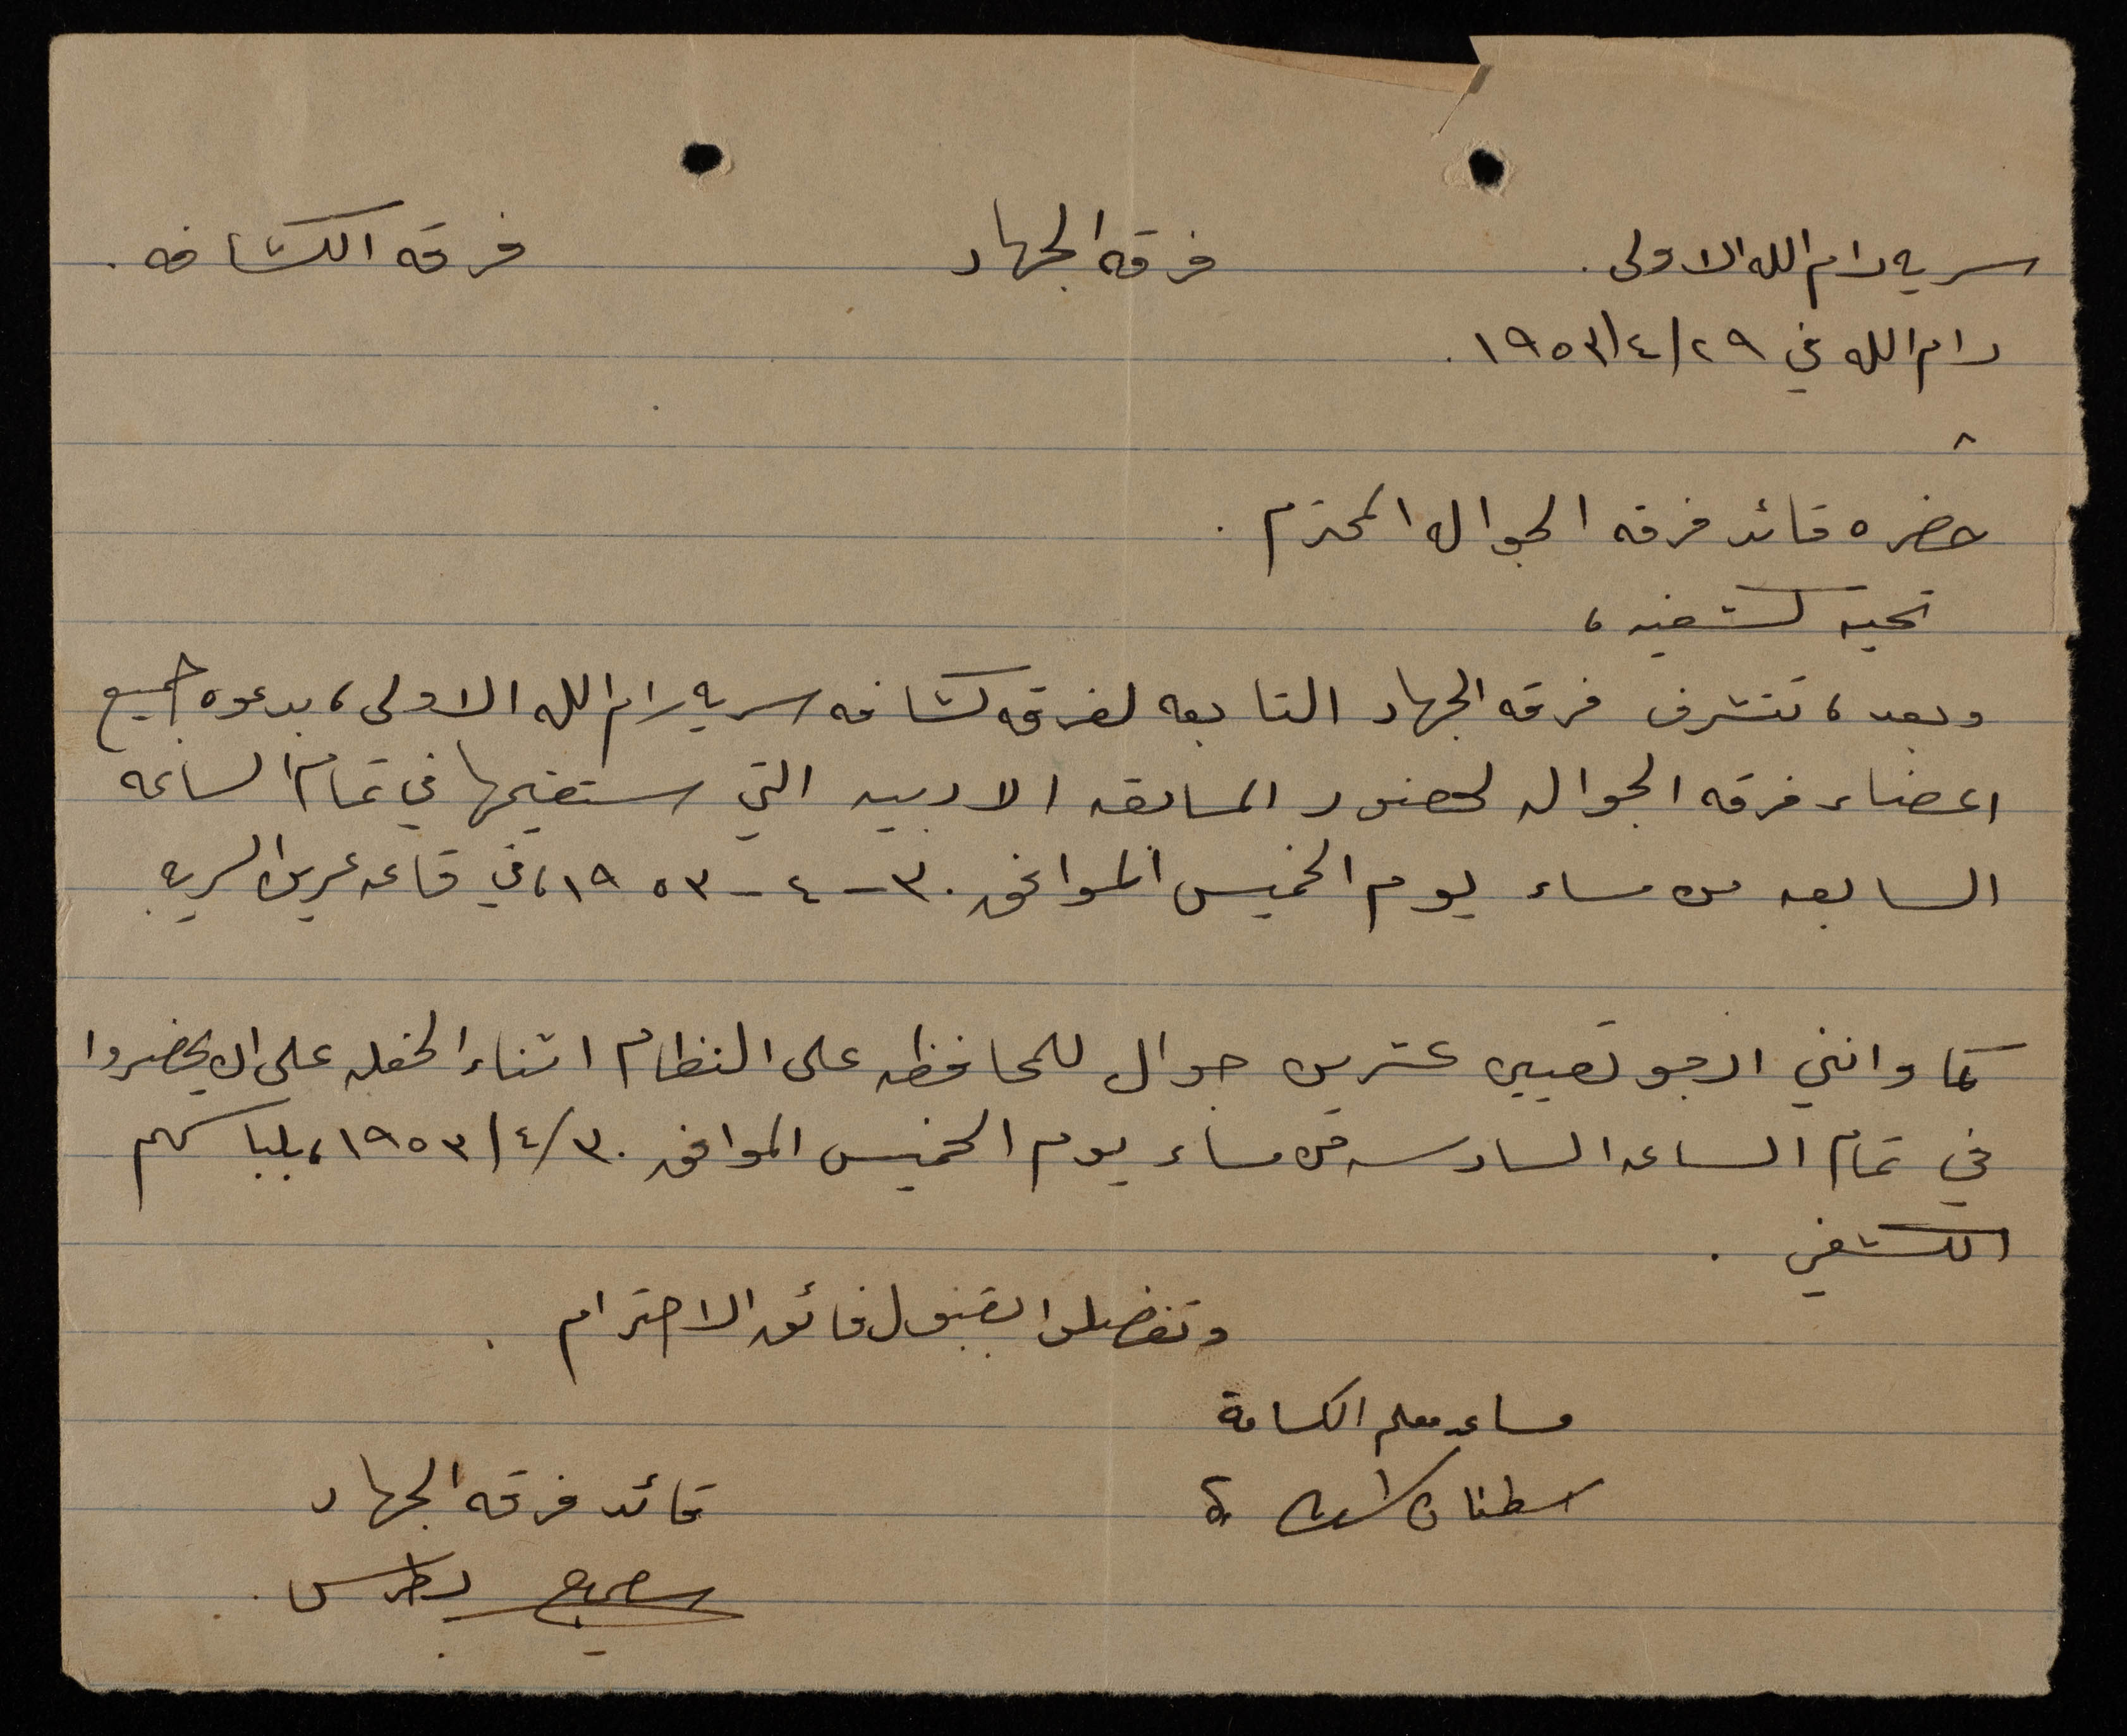 سريه رام الله الاولى. فرقه الجهاد فرقه الكشافه.
رام الله في ٢٩/٤/١٩٥٣.
حضره قائد فرقه الجواله المحترم.
تحيه كشفيه،
وبعد، تتشرف فرقه الجهاد التابعه لفرقه كشافه سريه رام الله الاولى، بدعوه جميع
اعضاء فرقه الجواله لحضور المسابقه الادبيه التي ستقيمها في تمام الساعه
السابعه من مساء يوم الخميس الموافق ٣٠-٤-١٩٥٣، في قاعه عرين السريه.
كما وانني ارجو تعيين عشرين جوال للمحافظه على النظام اثناء الحفله على ان يحضروا
في تمام الساعه السادسه من مساء يوم الخميس الموافق ٣٠/٤/١٩٥٣، بلباسهم
الكشفي.
وتفضلوا بقبول فائق الاحترام.
مساعد معلم الكشافة
قائد فرقه الجهاد
بطرس.